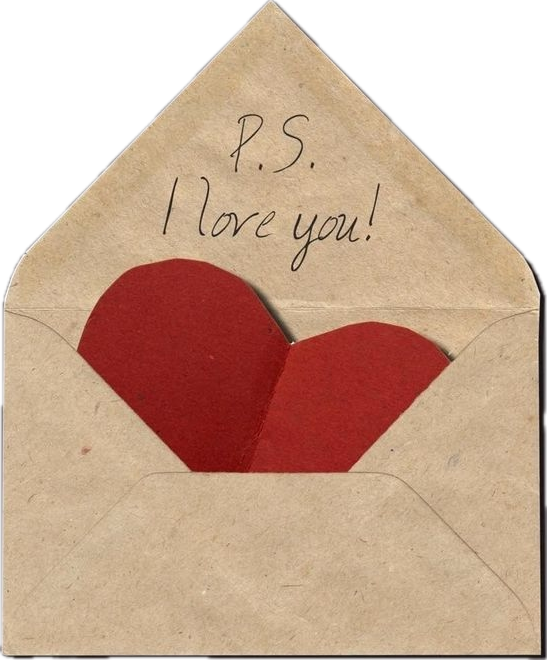 P.S.
I love you!